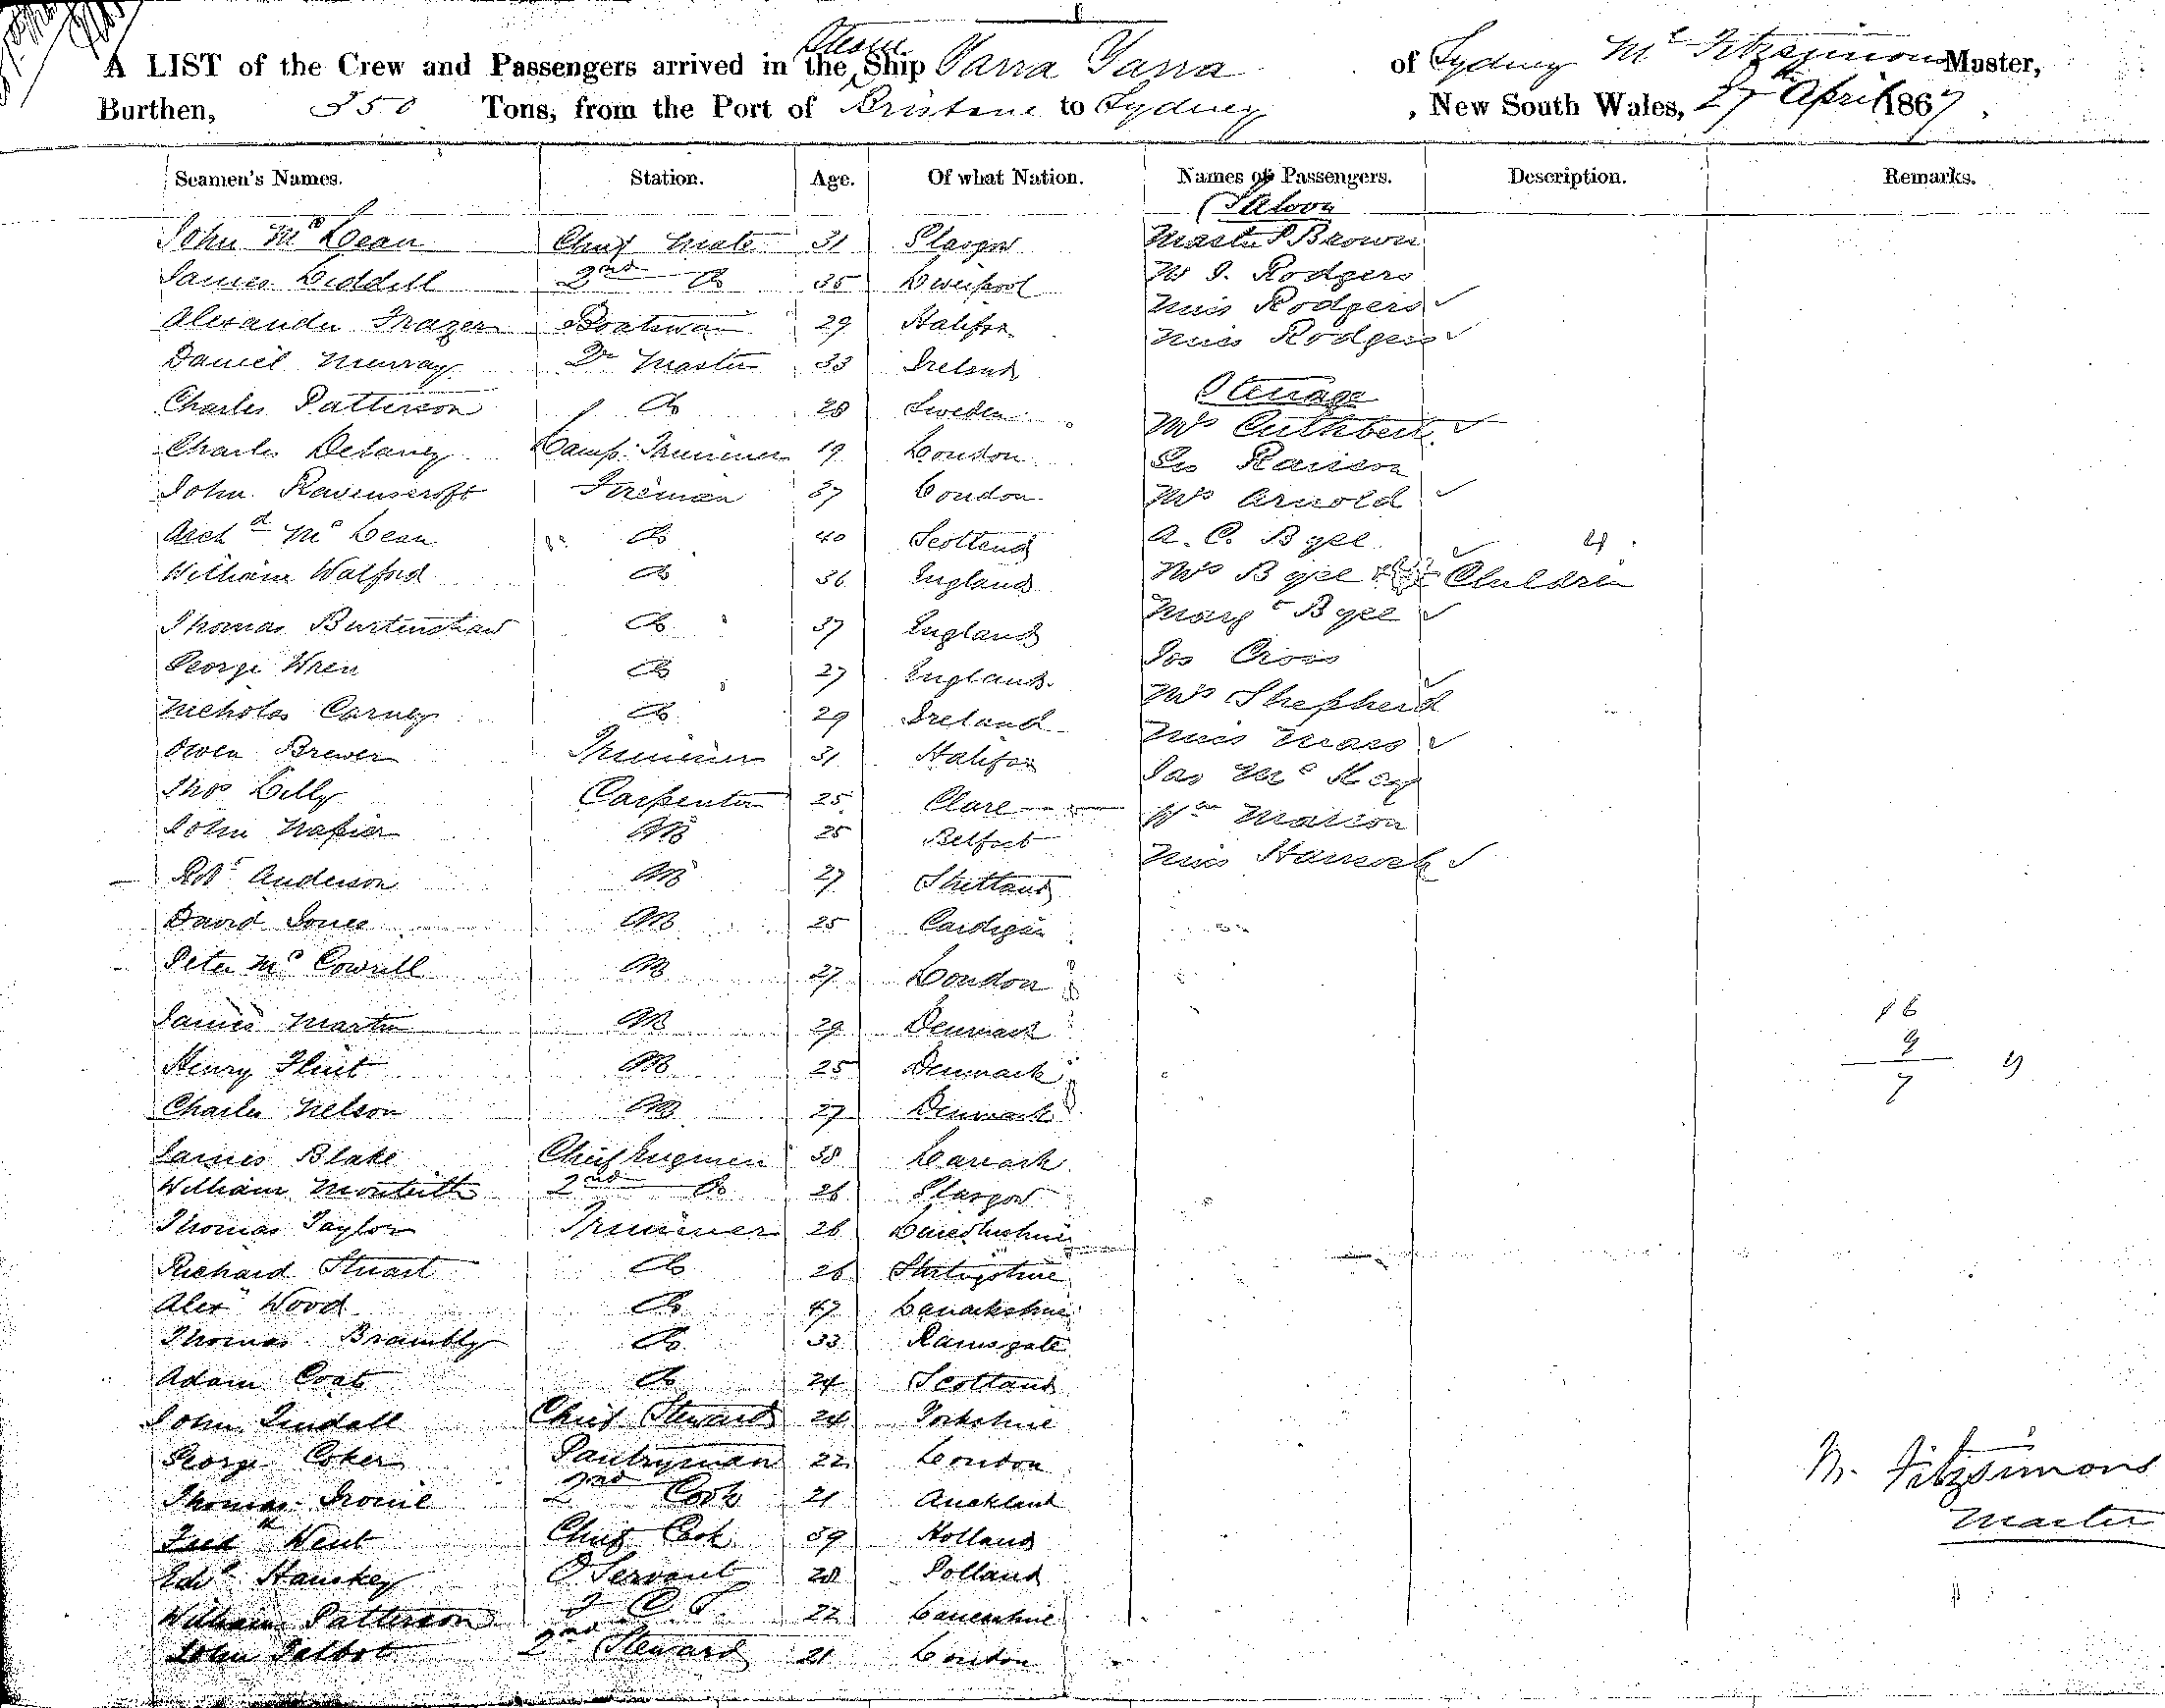 A LIST of the Crew and Passengers arrived in the Steam Ship Yarra Yarra of Sydney Mc Fitzsimons Master,
Burthen, 350 Tons, from the Port of Brisbane to Sydney, New South Wales, 27 April 1867.
Seamen's Names. Station. Age. Of what Nation. Names of Passengers. Description. Remarks.
Saloon
John Mc Lean Chief Mate 31 Glasgow Master Brown
James Liddell 2nd Do 35 Liverpool J. Rodgers
Alexander Frazer Boatswain 29 Halifax Miss Rodgers ✓
Miss Rodgers ✓
Daniel Murray Master 33 Ireland
Steerage
Charles Patterson Do 28 Sweden
Mrs Cuthbert ✓
Charles Delaney Lamp Trimmer 19 London
John Ravenscroft Fireman 37 London Mrs Arnold ✓
Archd Mc Lean Do 40 Scotland A. C. 4
William Walford Do 36 England Mrs Children
Thomas Burtinshaw Do 37 England Margt ✓
George Wren Do 27 England Jos Cross
Nicholas Carney Do 29 Ireland Mrs Shepherd ✓
Miss ✓
Owen Brewer Trimmer 31 Halifax
Jas Mc Kay
Thos Lilly Carpenter 25 Clare
Wm
John Napier AB 25 Belfast
Miss ✓
Robt Anderson AB 27 Shetland
David Jones AB 25 Cardigan
Peter Mc AB 27 London
James Martin AB 29 Denmark
Henry Flint AB 25 Denmark
16
9
7 9
Charles Nelson AB 27 Denmark
James Blake Chief Engineer 38 Lanark
William Monteith 2nd Do 26 Glasgow
Thomas Taylor Trimmer 26
Richard Stuart Do 26 Stirlingshire
Alexr Wood Do 47 Lanarkshire
Thomas Brambly Do 33 Ramsgate
Adam Coats Do 24 Scotland
John Chief Steward 24 Yorkshire
George Coker Pantryman 22 London
Thomas 2nd Cook 21 Auckland
Fredk Went Chief Cook 39 Holland
Edwd Servant 28 Polland
William Patterson 22
John Talbot 2nd Steward 21 London
M. Fitzsimons
Master